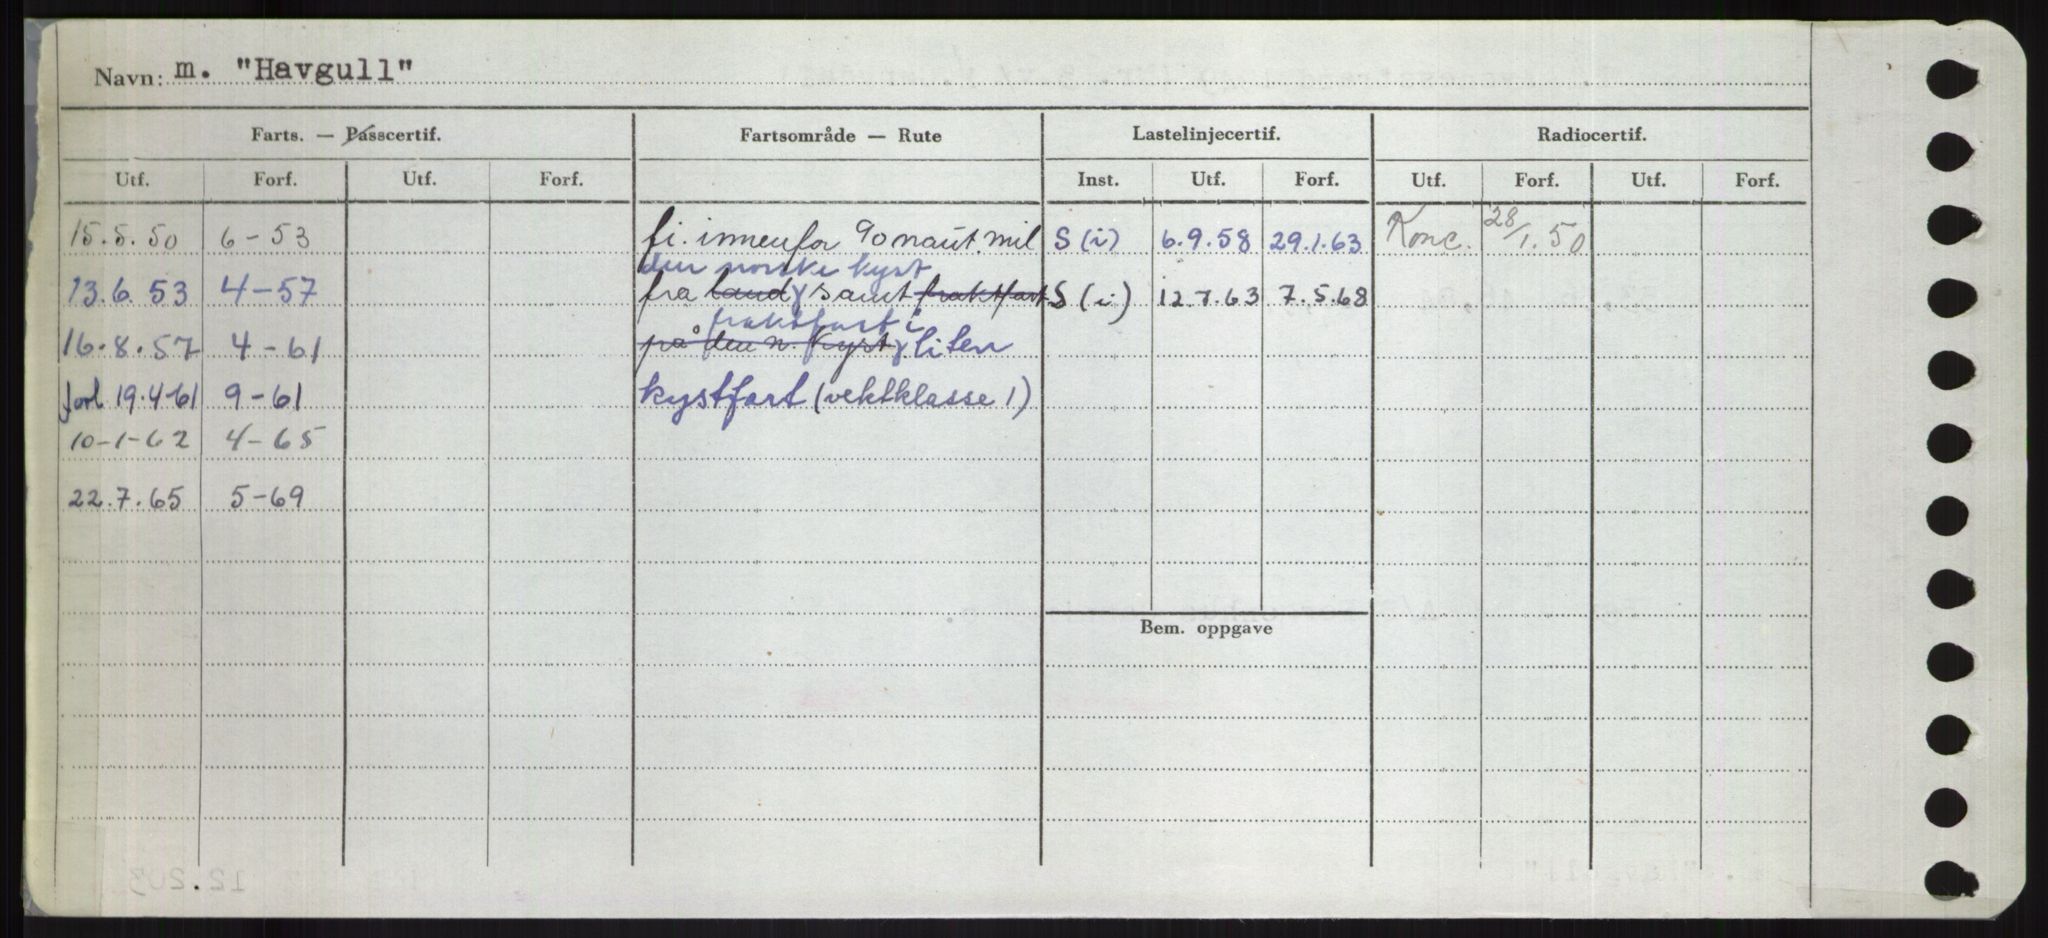 Navn: m. "Havgull"
Farts. — Passcertif. Fartsområde — Rute Lastelinjecertif. Radiocertif.
Utf. Forf. Utf. Forf. Inst. Utf. Forf. Utf. Forf. Utf. Forf.
15.5.50 6-53 fi. innenfor 90 naut mil S (i) 6.9.58 29.1.63 Konc. 28/1.50
den norske kyst
13.6.53 4-57 fra land samt fraktfart S (i) 12.7.63 7.5.68
fraktfart i
16.8.57 4-61 på den n. kyst liten
forl 19.4-61 9-61 kystfart (vektklasse 1)
10-1-62 4-65
22.7.65 5-69
Bem. oppgave